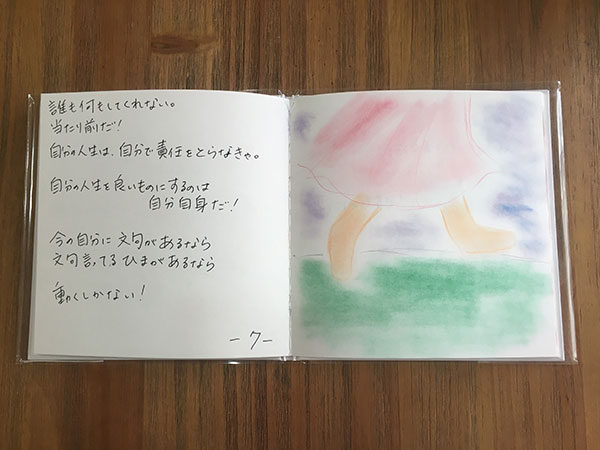 誰も何もしてくれない。
当たり前だ!
自分の人生は、自分で責任をとらなきゃ。
自分の人生を良いものにするのは
自分自身だ!
今の自分に文句があるなら
文句言ってるひまがあるなら
動くしかない!
-7-